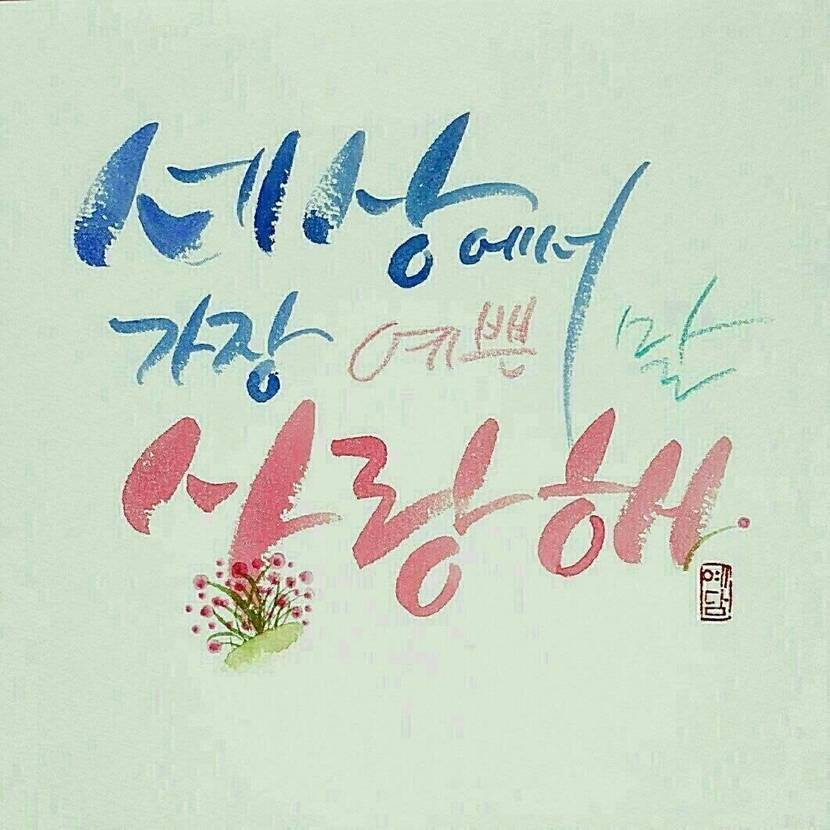 세상에서
가장 예쁜 말
사랑해.
예담